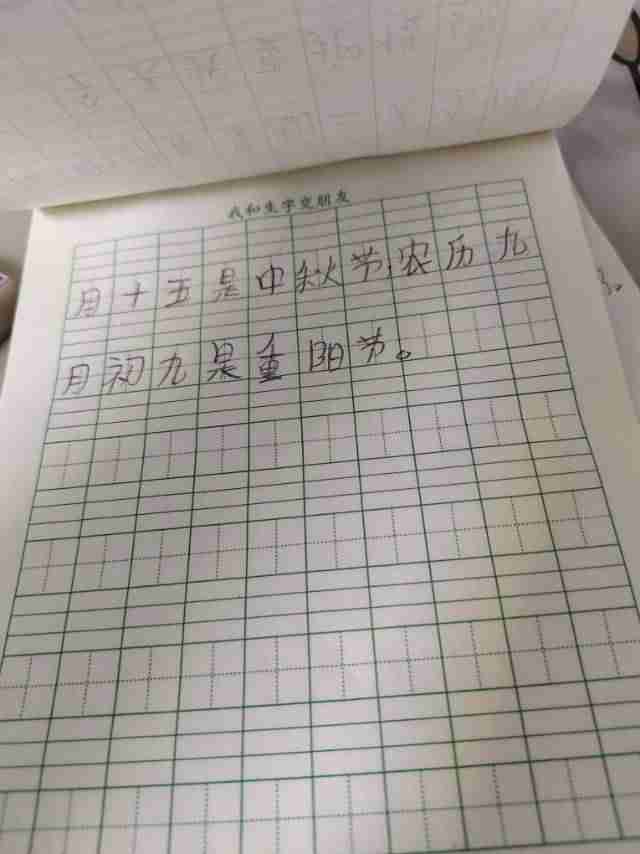 我和生字交朋友
月十五是中秋节,农历九
月初九是重阳节。